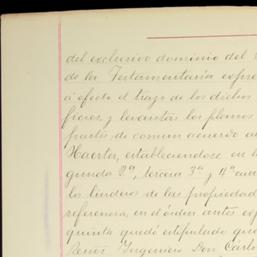 del exclusivo dominio del
de la Testamentaría
á efecto el trazo de los dichos
y levantó los planos
partes de comun acuerdo
Huerta, estableciendose en
2ª, tercera 3ª y 4ª
los linderos de las propiedad
referencia, en el órden antes
quinta quedó estipulado que
Señor Ingeniero Don Cárlo